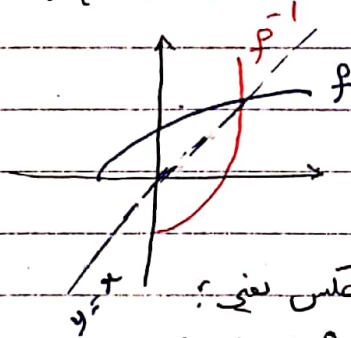 f⁻¹
f
y=x
عكس يعني :